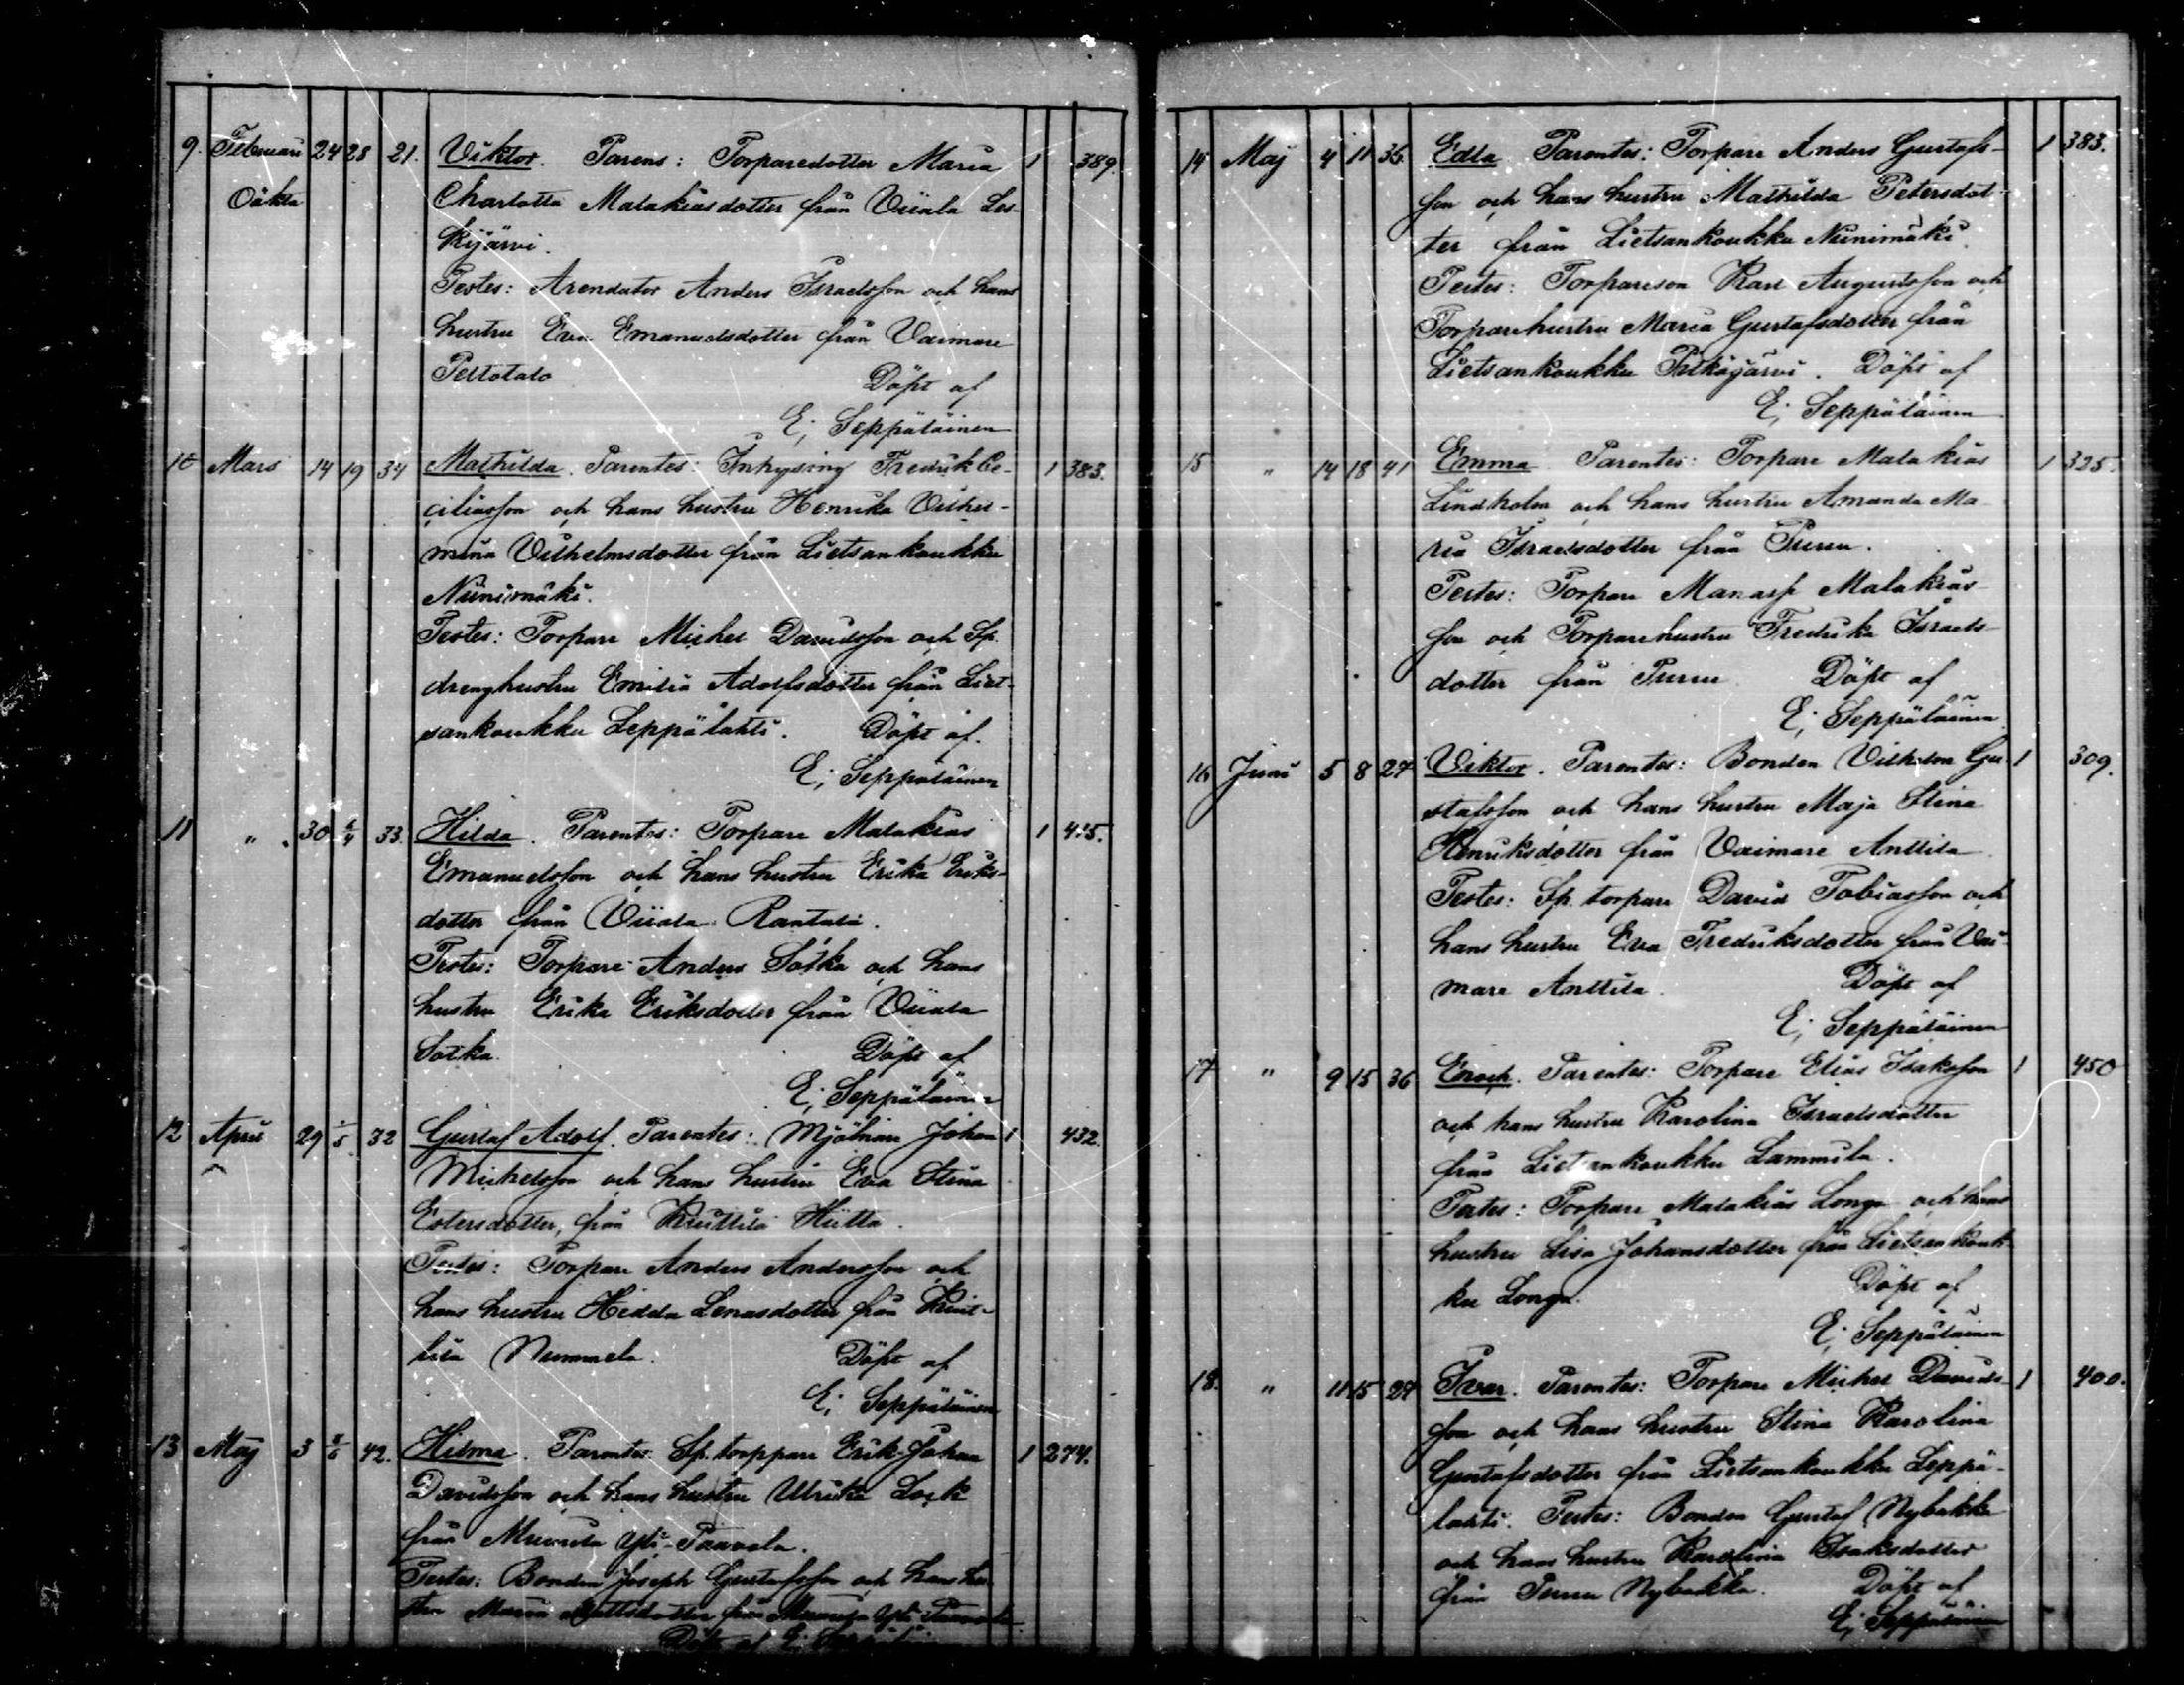 9. Februari 24 28 21. Viktor. Parens: Torparedotter Maria 1 389.
Oäkta Charlotta Malakiasdotter från Viiala Les-
kijärvi.
Testes: Arendator Anders Israelsson och hans
hustru Eva Emanuelsdotter från Vaimare
Peltotalo Döpt af
E; Seppäläinen
10 Mars 14 19 34 Mathilda. Parentes: Inhysing Fredrik Ce-
1 383.
ciliasson och hans hustru Henrika Vilhel-
mina Vilhelmsdotter från Lietsankoukku
Niinimäki.
Testes: Torpare Michel Davidsson och Sp.
drenghustru Emilia Adolfsdotter från Liet-
sankoukku Leppälahti. Döpt af.
E; Seppäläinen
11 " 30 6/4 33 Hilda. Parentes: Torpare Malakias 1 415.
Emanuelsson och hans hustru Erika Eriks-
dotter från Viiala Rantala.
Testes: Torpare Anders Sotka och hans
hustru Erika Eriksdotter från Viiala
Sotka. Döpt af
E; Seppäläinen
12 April 29 1/5 32 Gustaf Adolf. Parentes: Mjölnare Johan 1 432.
Michelsson och hans hustru Eva Stina
Estersdotter, från Kruttila Hiitta.
Testes: Torpare Anders Andersson och
hans hustru Hedda Lenasdotter från
Nummela. Döpt af
E; Seppäläinen
13 Maj 3 42. Hilma. Parentes: Sp. torppare Erik Johan 1 274.
Davidsson och hans hustru Ulrika Lock
från Murula Yli-Paavola.
Testes: Bonden Joseph Gustafsson och hans hu-
stru Maria Mattsdotter från Yli-Paavola
Döpt af E; Seppäläinen
14 Maj 4 11 36. Edla Parentes: Torpare Anders Gustafs- 1 383.
son och hans hustru Mathilda Petersdot-
ter från Lietsankoukku Niinimäki.
Testes: Torpareson Karl Augustsson och
Torparehustru Maria Gustafsdotter från
Lietsankoukku Pitkäjärvi. Döpt af
E; Seppäläinen
15 " 14 18 41 Emma Parentes: Torpare Malakias 1 325.
Lindholm och hans hustru Amanda Ma-
ria Israelsdotter från Puru.
Testes: Torpare Manasse Malakias-
son och Torparehustru Fredrika Israels-
dotter från Puru Döpt af
E; Seppäläinen
16 Juni 5 8 27 Viktor. Parentes: Bonden Vilhelm Gu- 1 309.
stafsson och hans hustru Maja Stina
Henriksdotter från Vaimare Anttila
Testes: Sp. torpare David Tobiasson och
hans hustru Eva Fredriksdotter från Vai-
mare Anttila. Döpt af
E; Seppäläinen
17 " 9 15 36 Enock. Parentes: Torpare Elias Isaksson 1 450
och hans hustru Karolina Israelsdotter
från Lietsankoukku Lammila.
Testes: Torpare Malakias Longa och hans
hustru Lisa Johansdotter från Lietsankouk-
ku Longa. Döpt af
E; Seppäläinen
18. " 11 15 27 Ivar. Parentes: Torpare Michel Davids- 1 400.
son och hans hustru Stina Karolina
Gustafsdotter från Lietsankoukku Leppä-
lahti. Testes: Bonden Gustaf Nybakka
och hans hustru Karolina Isaksdotter
från Puru Nybakka. Döpt af
E; Seppäläinen